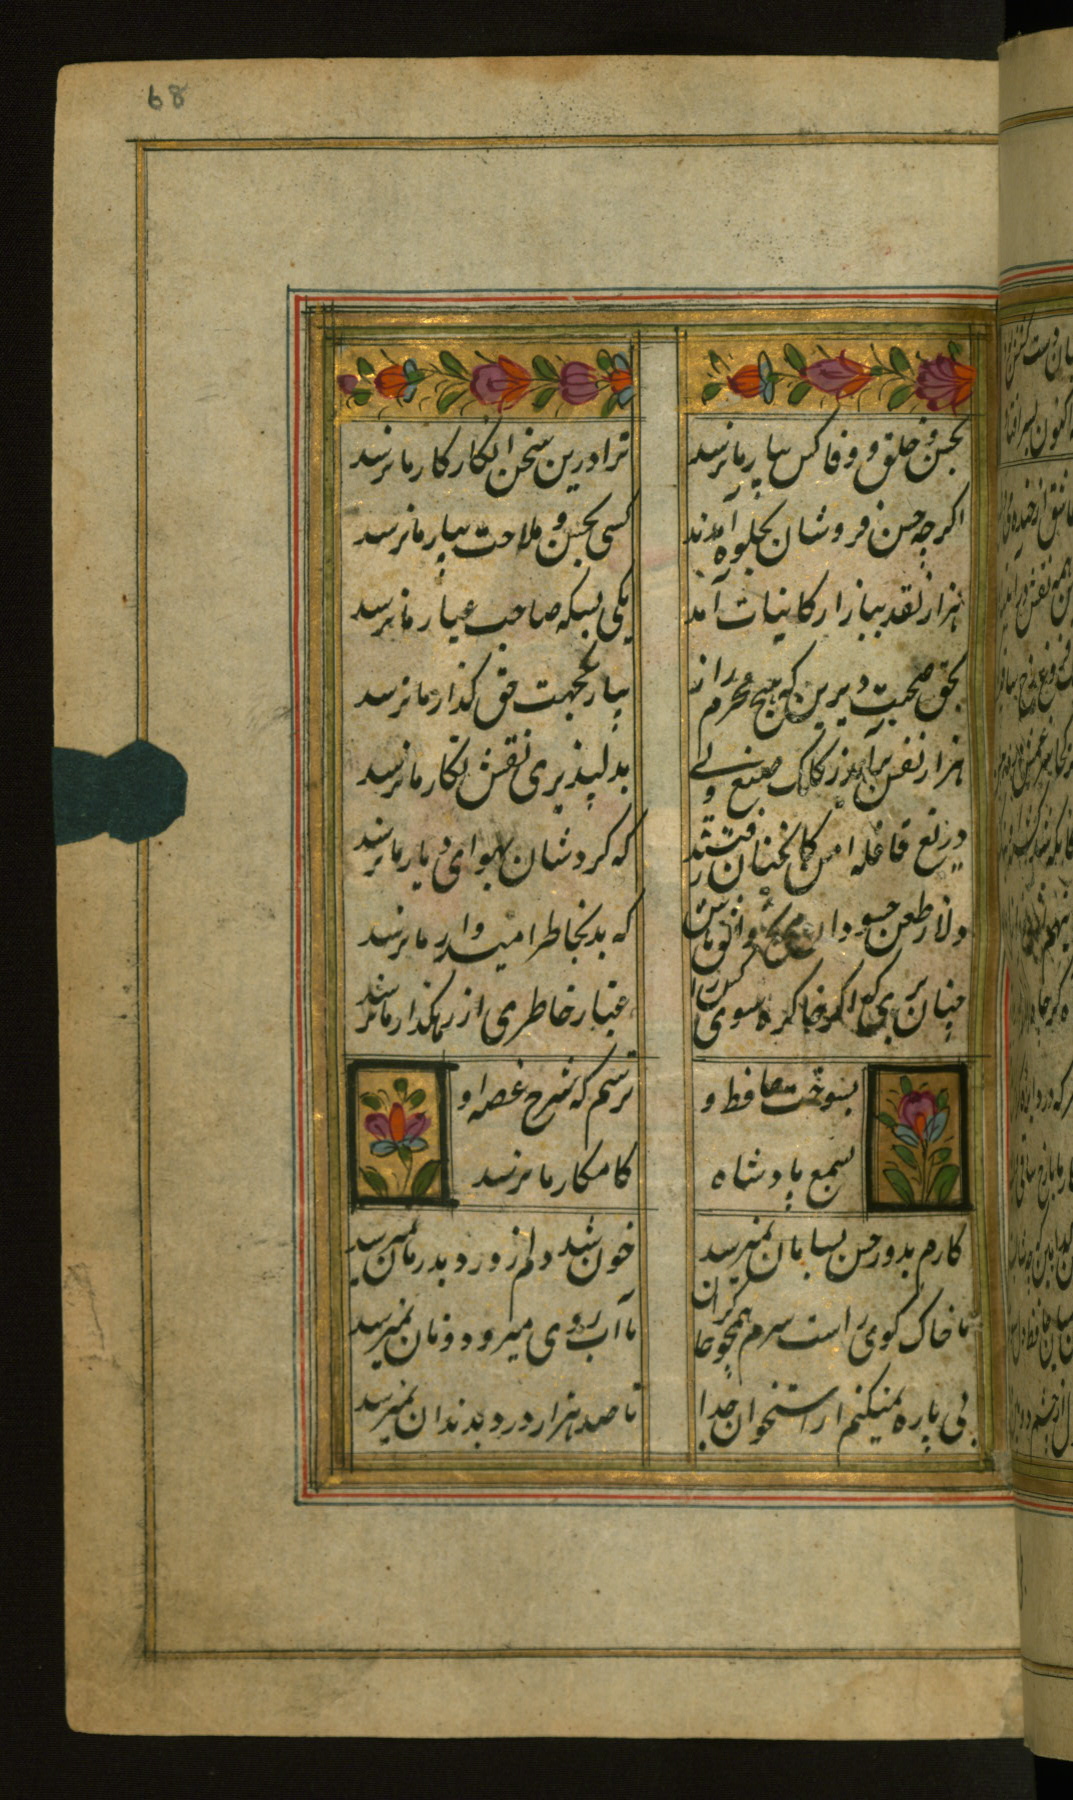 68
بحسن و خلق و وفا کس بیار ما نرسد
ترا درین سخن انکار کار ما نرسد
اکرچه حسن فروشان بجلوه آمدند
کسی بحسن و ملاحت بیار ما نرسد
هزار نقد ببازار کاینات آمد
یکی بسکه صاحب عیار ما نرسد
بحق صحبت دیرین که هیچ محرم راز
بیار یکجهت حق کذار ما نرسد
هزار نقش برآمد ز کلک صنع ولی
بدلپذیری نقش نکار ما نرسد
دریغ قافله امن کانچنان رفتند
که کردشان بهوای دیار ما نرسد
دلا ز طعن حسودان مرنج و
که بد بخاطر امیدوار ما نرسد
چنان بزی که اکر خاک ره سوی کس را
غبار خاطری از رهکذار ما نرسد
بسوخت حافظ و
ترسم که شرح غصه او
بسمع پادشاه
کامکار ما نرسد
کارم بدور حسن بسامان نمیرسد
خون شد دلم ز درد بدرمان نمیرسد
تا خاک کوی است سرم همچو خا
تا آب روی میرود و نان نمیرسد
پی پاره نمیکنم از استخوان جدا
تا صد هزار درد بدندان نمیرسد